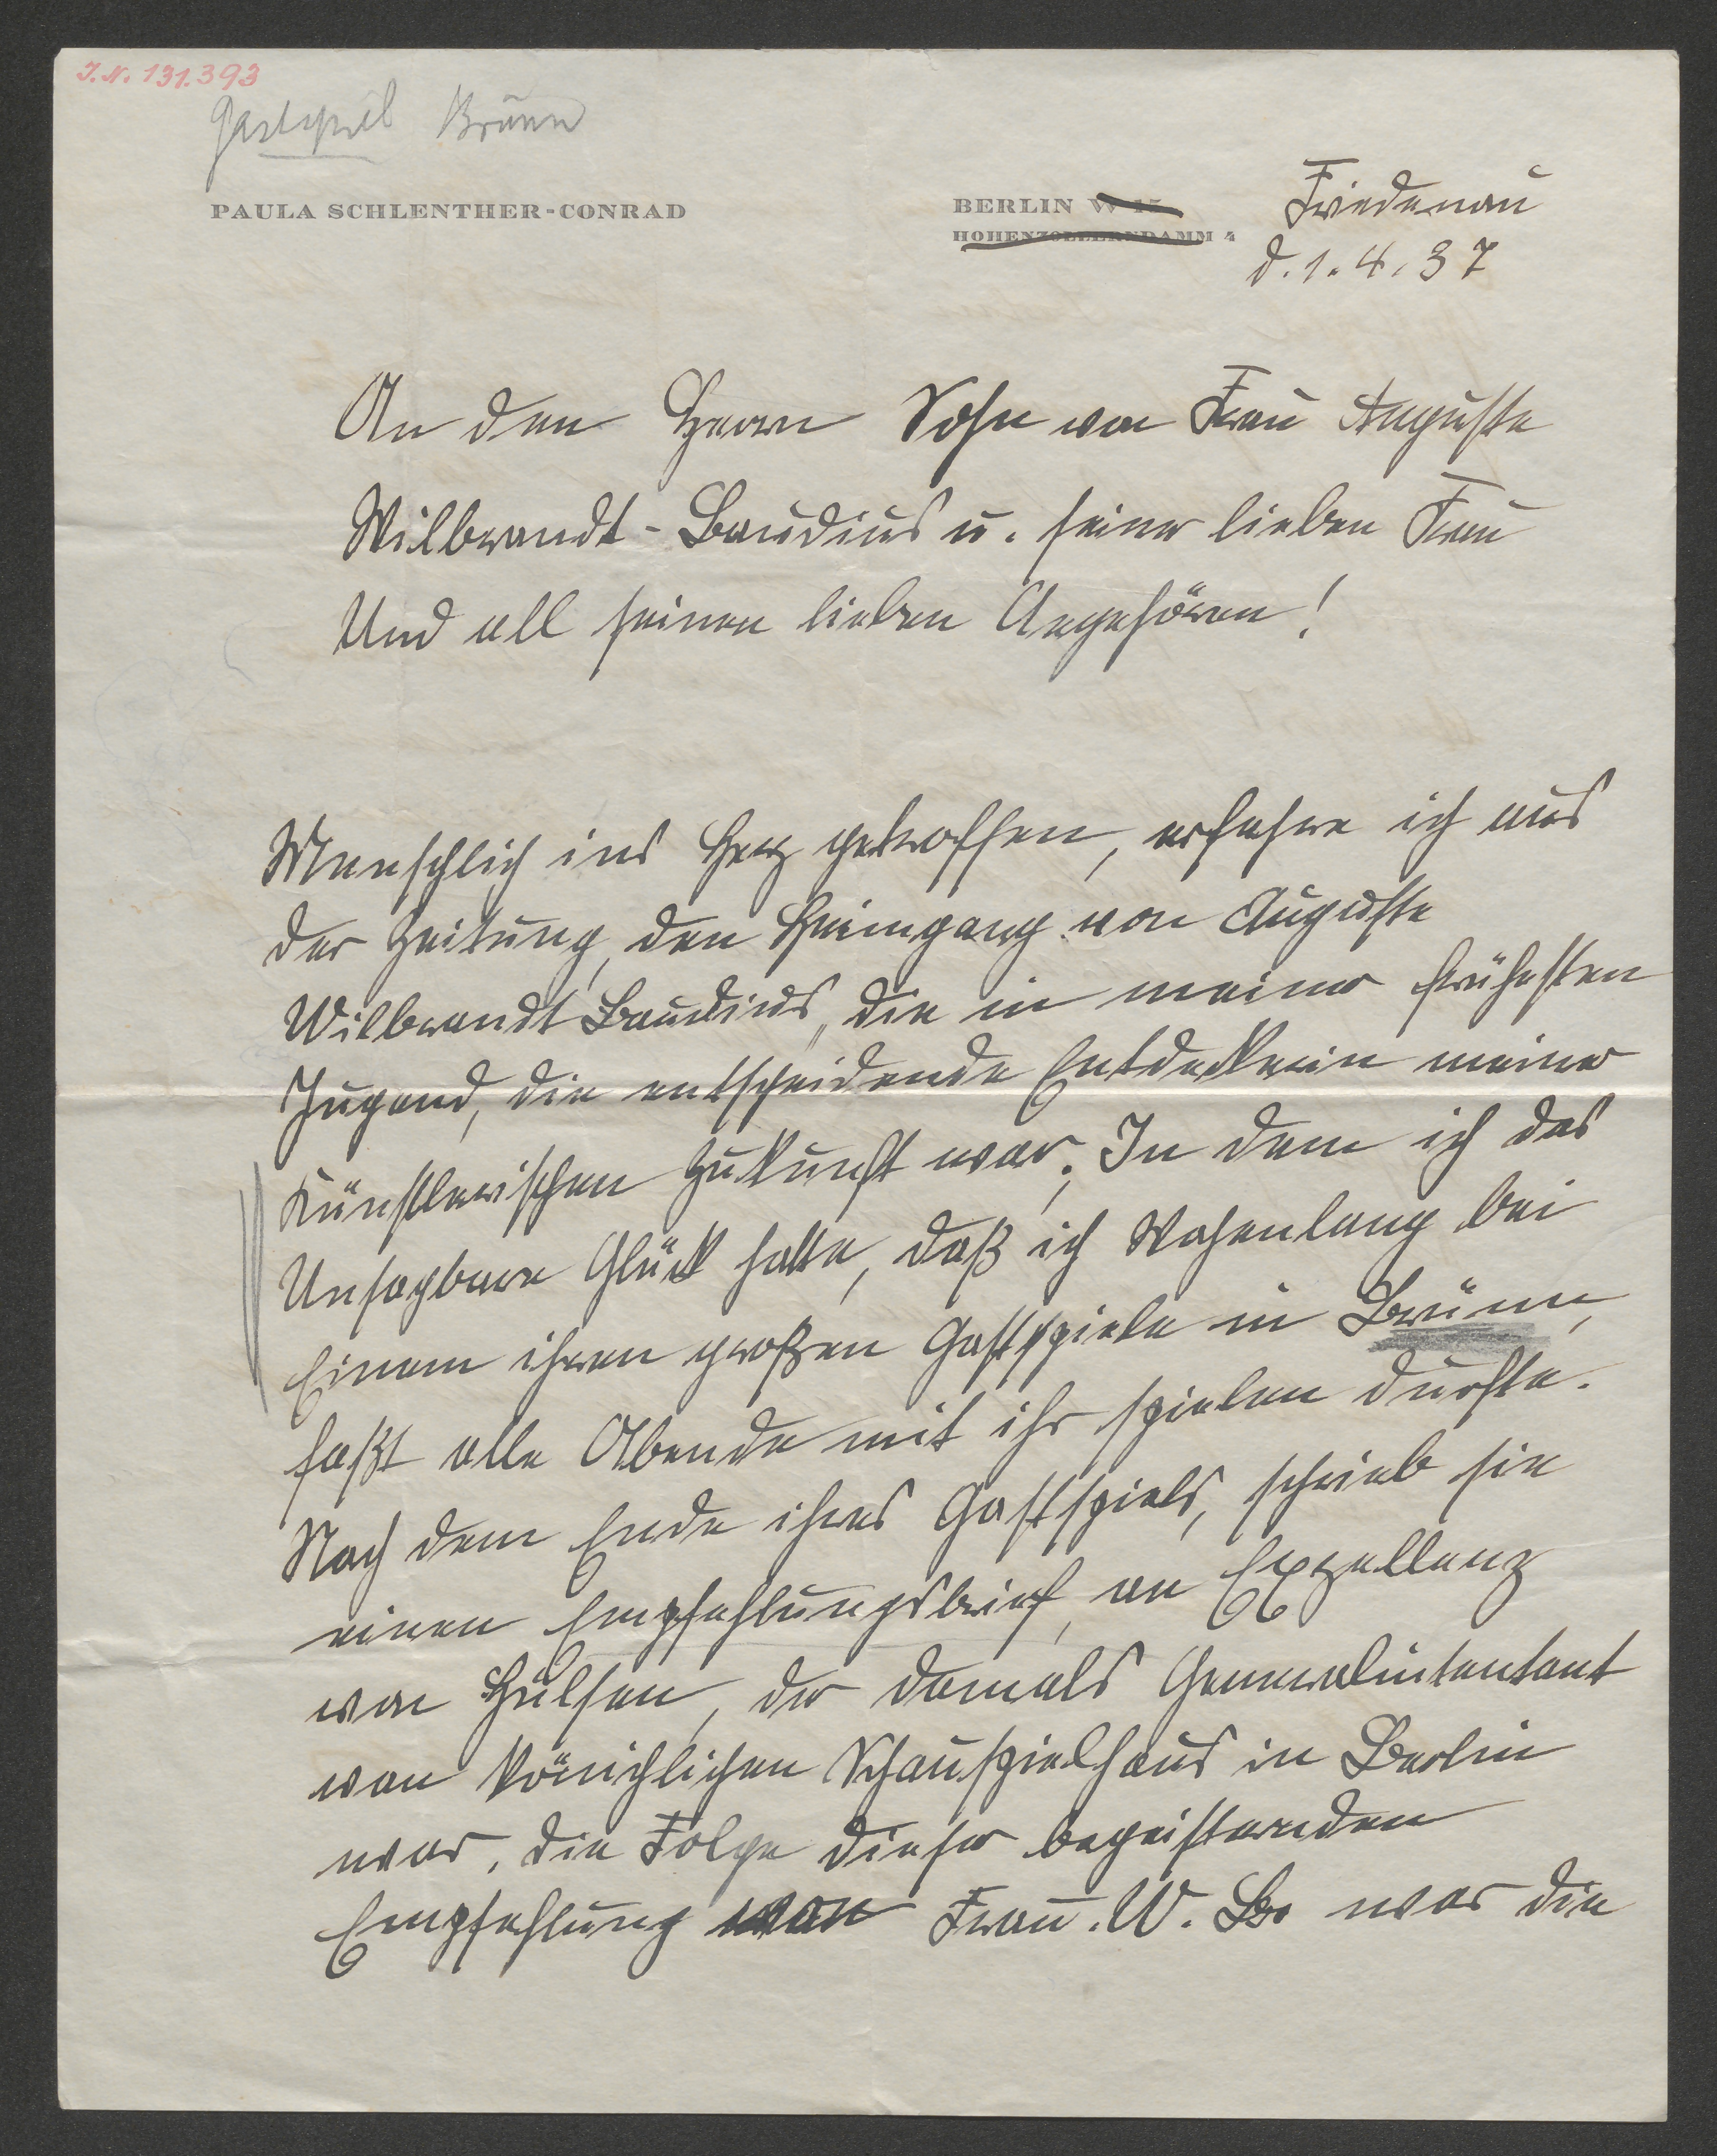 J.N. 131.393
Gastspiel Brünn
PAULA SCHLENTHER-CONRAD
BERLIN W 15 Friedenau
HOHENZOLLERNDAMM 4
d. 1. 4. 37
An den Herrn Sohn von Frau Auguste
Wilbrandt-Baudius u. seiner lieben Frau
Und all seinen lieben Angehören!
Menschlich ins Herz getroffen, erfahre ich aus
der Zeitung, den Heimgang von Auguste
Wilbrandt Baudius, die in meiner frühesten
Jugend, die entscheidende Entdeckerin meiner
Künstlerischen Zukunft war. In dem ich das
Unsagbare Glück hatte, daß ich Wochenlang bei
Einem ihren großen Gastspiele in Brünn,
faßt alle Abende mit ihr spielen durfte.
Nach dem Ende ihres Gastspiels, schrieb sie
einen Empfehlungsbrief, an Exzellenz
von Hülsen, der damals Generalintentant
von Königlichen Schauspielhaus in Berlin
war. Die Folge dieser begeisternden
Empfehlung von Frau. W. B. war die